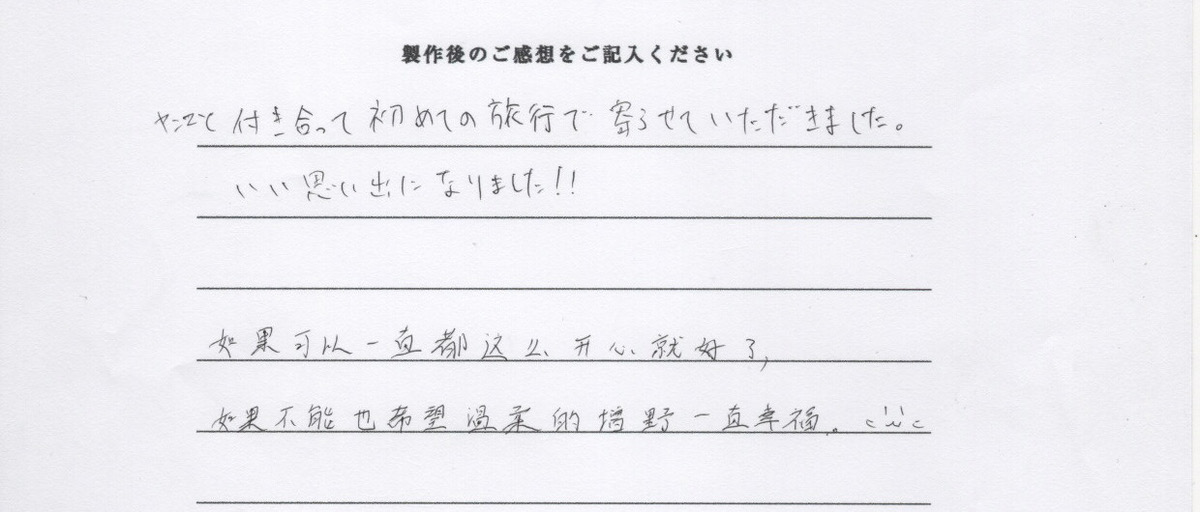 製作後のご感想をご記入ください
付き合って初めての旅行で寄らせていただきました。
いい思い出になりました!!
如果可以一直都这么开心就好了,
如果不能也希望温柔的 野一直幸福。